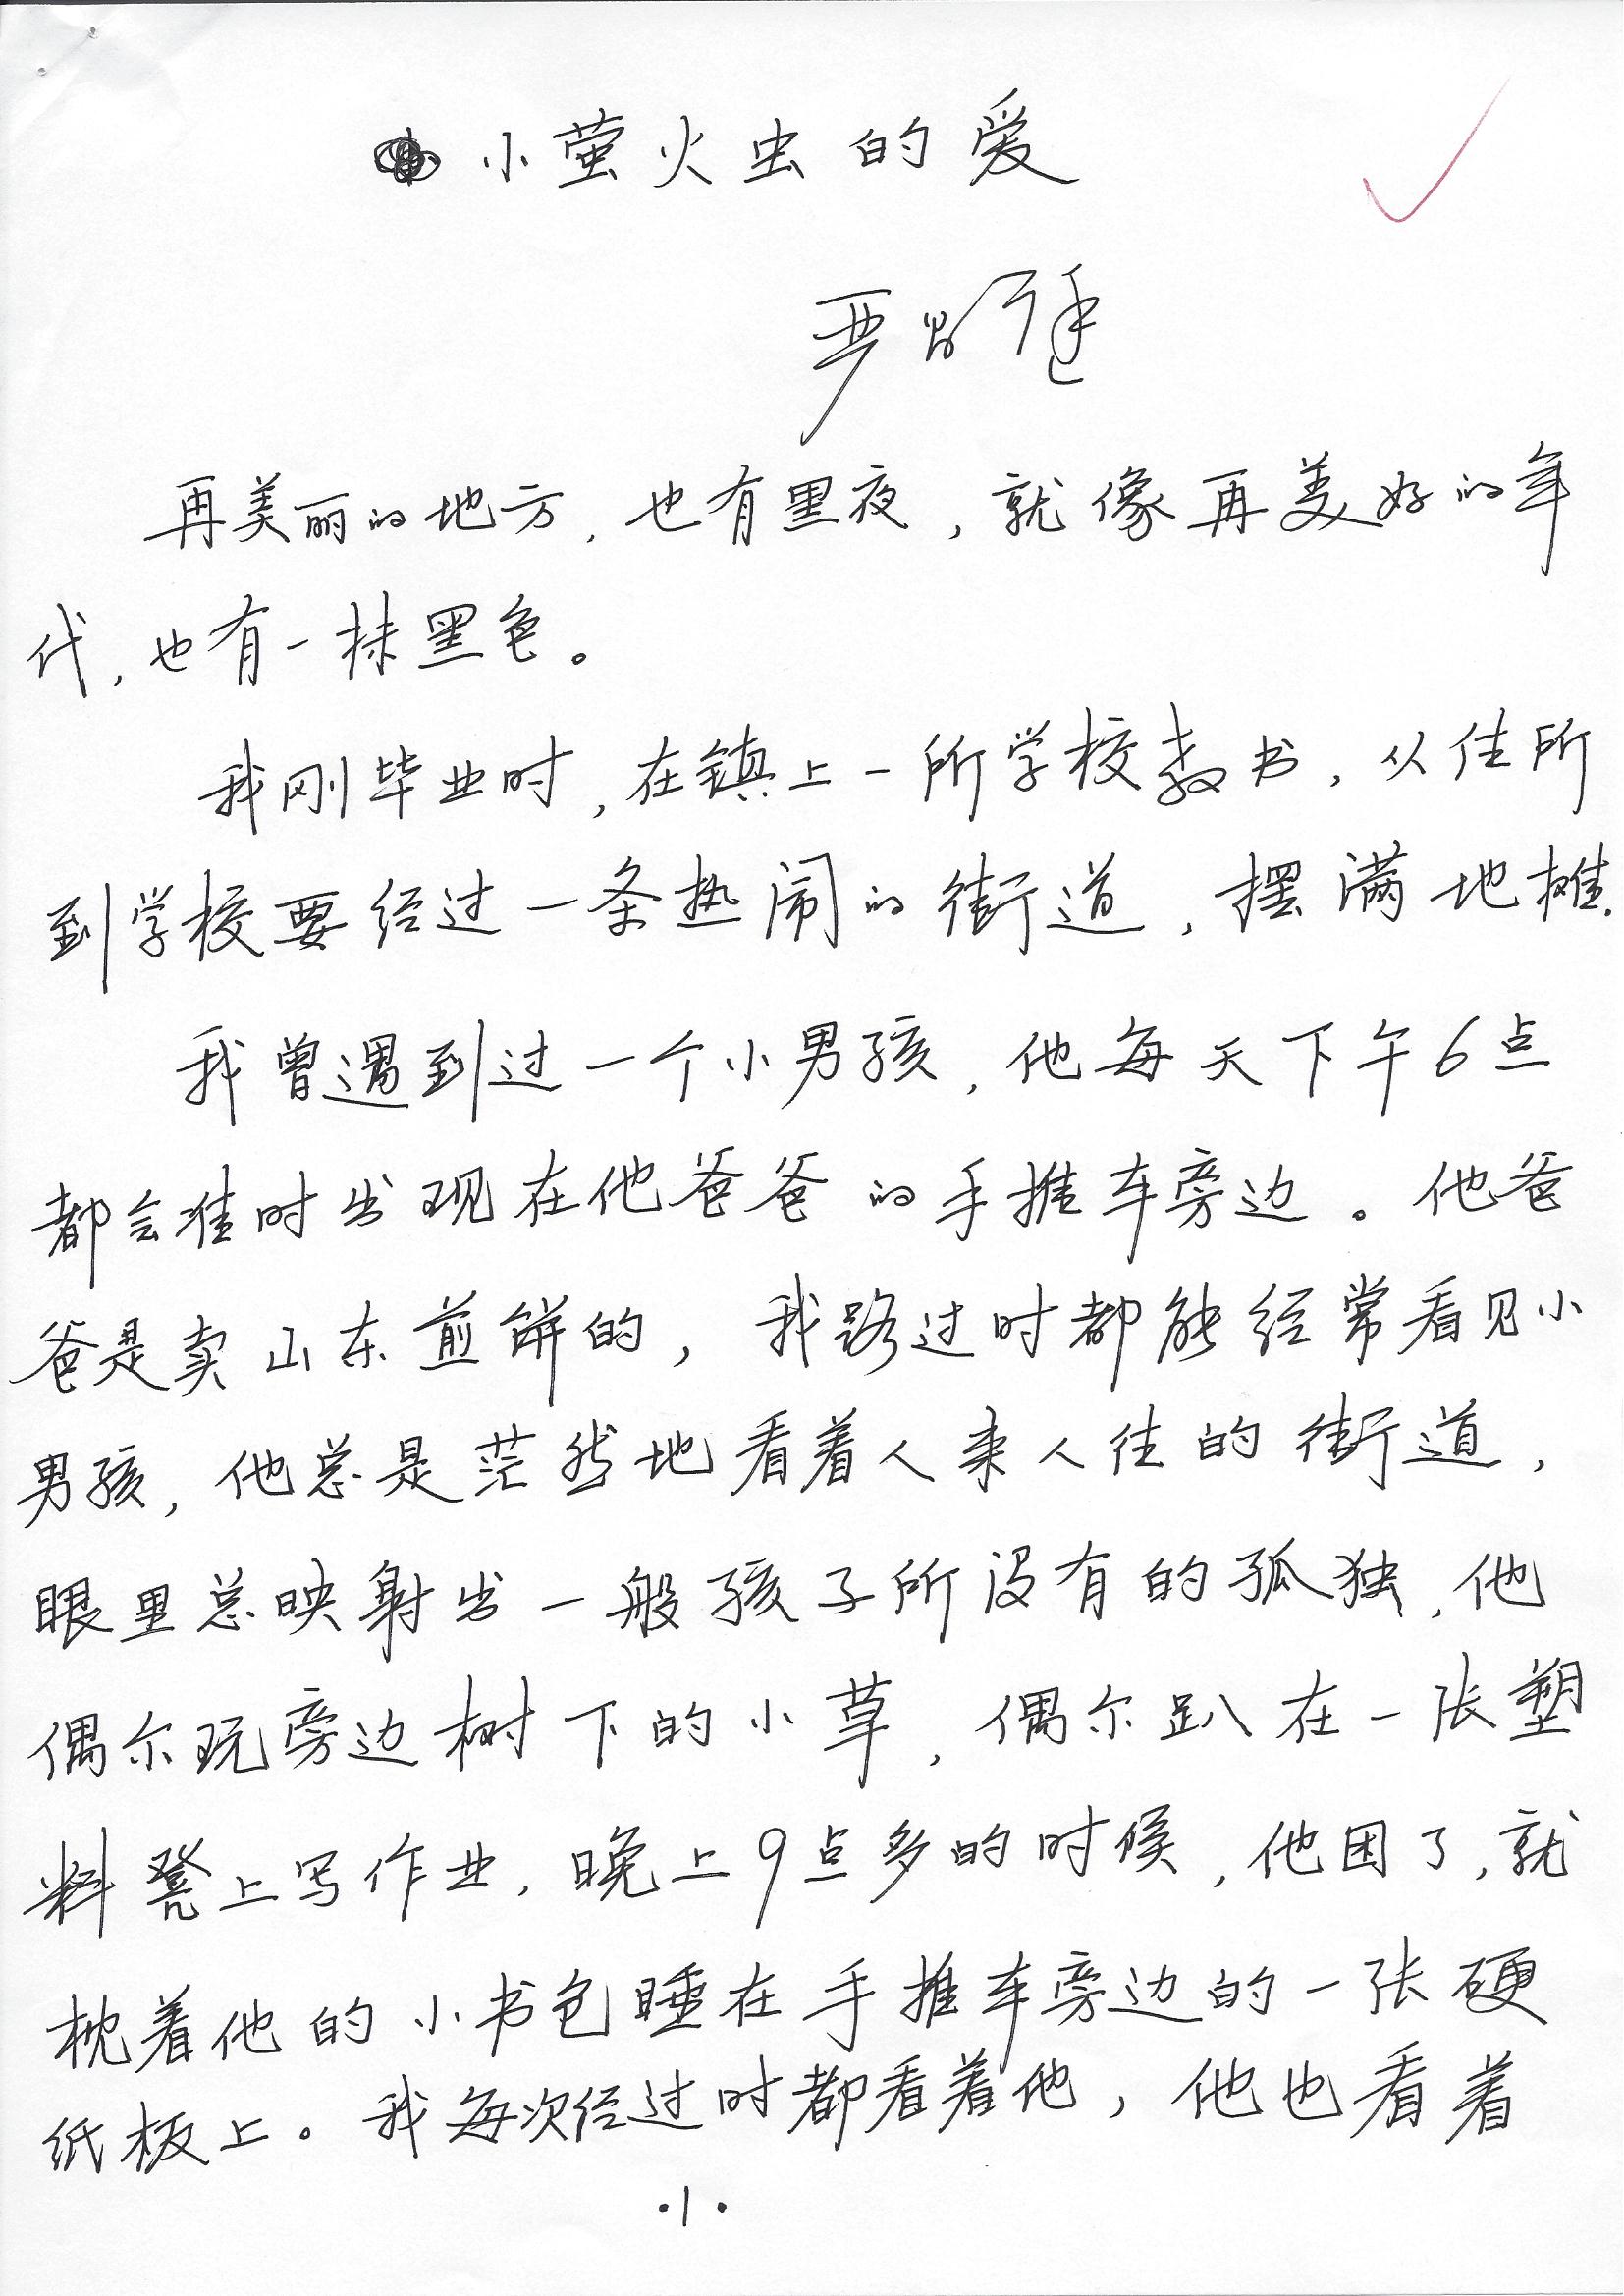 小萤火虫的爱
再美丽的地方，也有黑夜，就像再美好的年
代，也有一抹黑色。
我刚毕业时，在镇上一所学校教书，从住所
到学校要经过一条热闹的街道，摆满地摊.
我曾遇到过一个小男孩，他每天下午6点
都会准时出现在他爸爸的手推车旁边。他爸
爸是卖山东煎饼的，我路过时都能经常看见小
男孩，他总是茫然地看着人来人往的街道，
眼里总映射出一般孩子所没有的孤独，他
偶尔玩旁边树下的小草，偶尔趴在一张塑
料凳上写作业，晚上9点多的时候，他困了，就
枕着他的小书包睡在手推车旁边的一张硬
纸板上。我每次经过时都看着他，他也看着
·1·